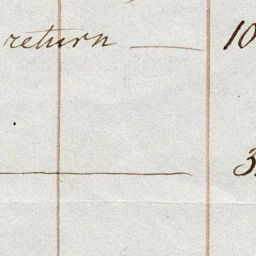 return — 10
3